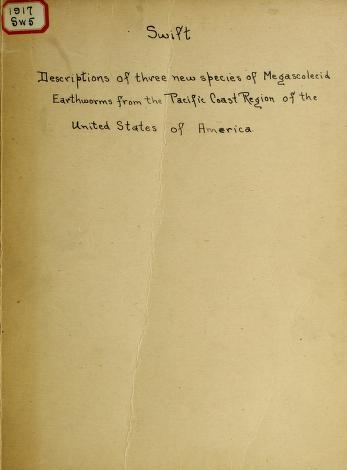 1917
SW5
Swift
Descriptions of three new species of Megascolecid
Earthworms from the Pacific Coast Region of the
United States of America